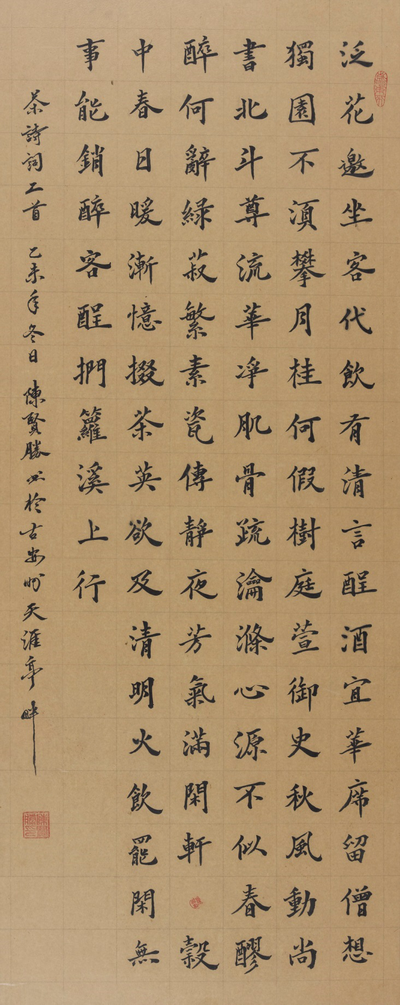 泛花邀坐客代飲有清言醒酒宜華席留僧想
獨園不湏攀月桂何假樹庭萱御史秋風動尚
書北斗尊流華凈肌骨疏瀹滌心源不似春醪
醉何辭綠菽繁素瓷傳靜夜芳氣滿閑軒 穀
中春日暖漸憶掇茶英欲及清明火飲罷閑無
事能銷醉客醒捫籮溪上行
茶詩詞二首 乙未年冬日陳賢勝書於古安州天涯亭畔